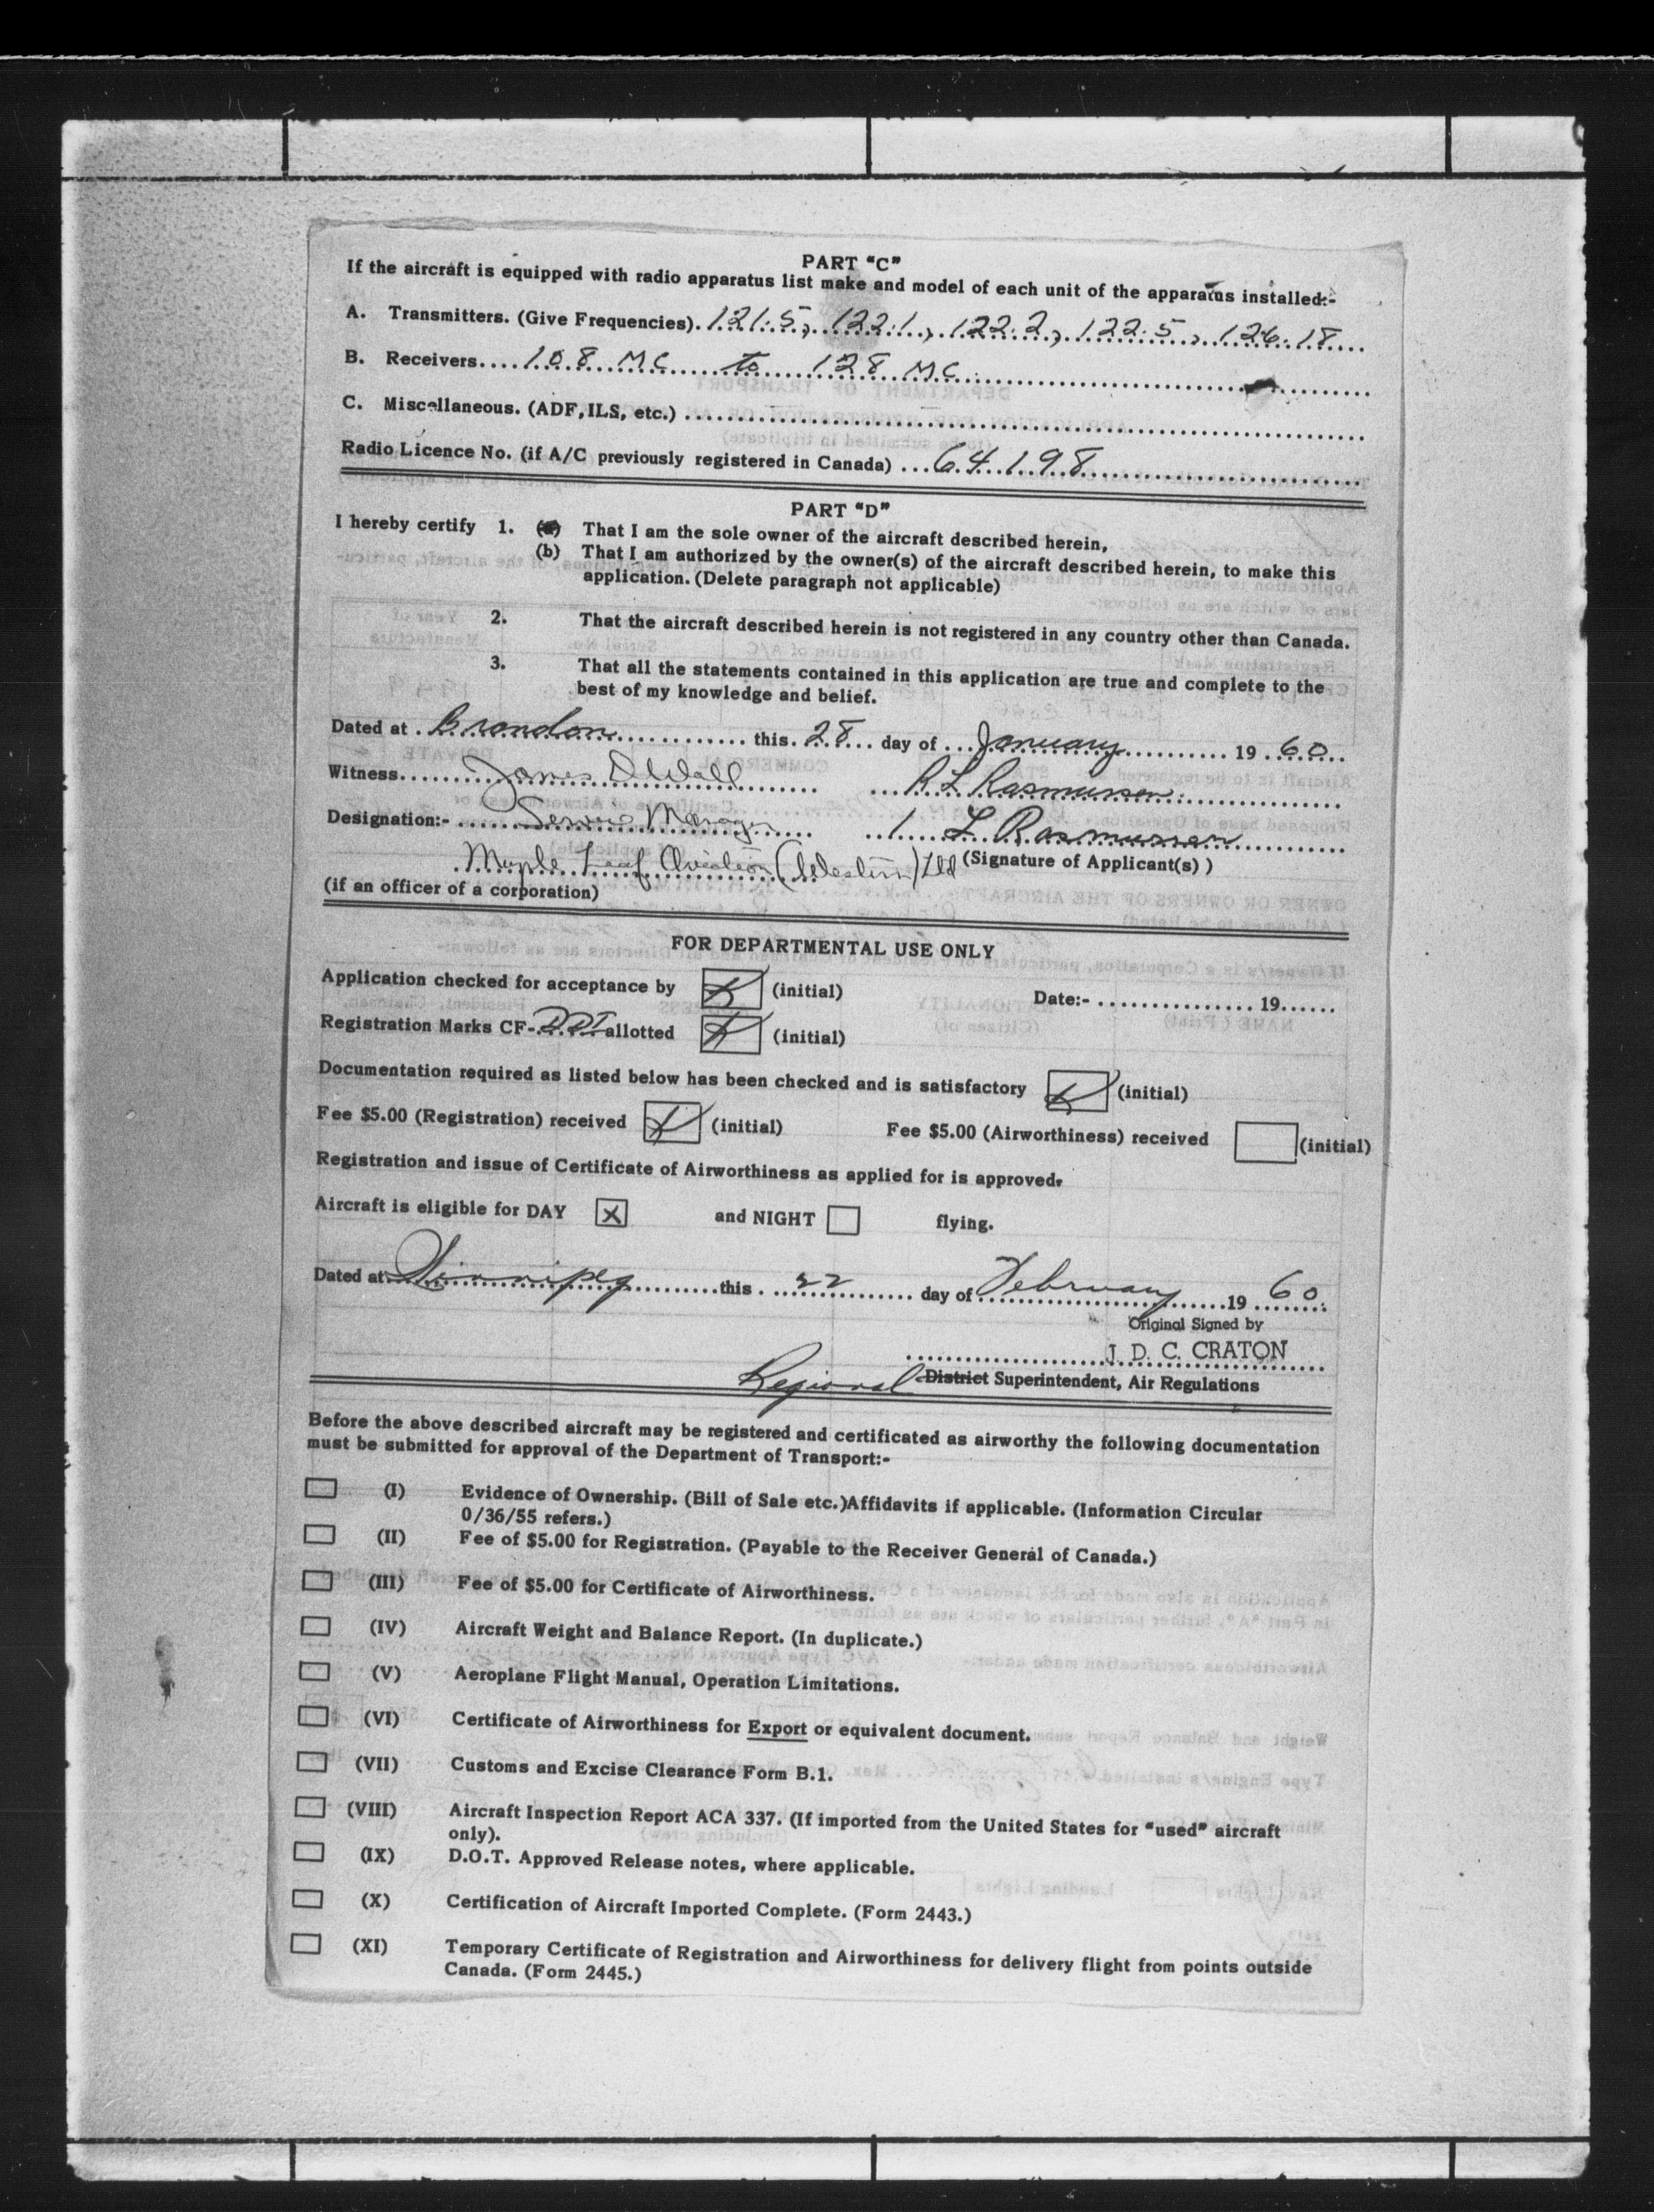 PART "C"
If the aircraft is equipped with radio apparatus list make and model of each unit of the apparatus installed:-
A. Transmitters. (Give Frequencies). 121.5, 122.1, 122.2, 122.5, 126.18
B. Receivers.... 108 MC to 128 MC
C. Miscellaneous. (ADF, ILS, etc.)
Radio Licence No. (if A/C previously registered in Canada) ... 64198
PART "D"
I hereby certify 1. (a) That I am the sole owner of the aircraft described herein,
(b) That I am authorized by the owner(s) of the aircraft described herein, to make this
application. (Delete paragraph not applicable)
2. That the aircraft described herein is not registered in any country other than Canada.
3. That all the statements contained in this application are true and complete to the
best of my knowledge and belief.
Dated at Brandon this 28 day of January 19 60
Witness James D Wall R L Rasmussen
Designation:- Service Manager L Rasmussen
Maple Leaf Aviation (Western) Ltd (Signature of Applicant(s) )
(if an officer of a corporation)
FOR DEPARTMENTAL USE ONLY
Application checked for acceptance by (initial) Date:- 19
Registration Marks CF- allotted (initial)
Documentation required as listed below has been checked and is satisfactory (initial)
Fee $5.00 (Registration) received (initial) Fee $5.00 (Airworthiness) received (initial)
Registration and issue of Certificate of Airworthiness as applied for is approved.
Aircraft is eligible for DAY X and NIGHT flying.
Dated at Winnipeg this 22 day of February 19 60
Original Signed by
J. D. C. CRATON
Regional District Superintendent, Air Regulations
Before the above described aircraft may be registered and certificated as airworthy the following documentation
must be submitted for approval of the Department of Transport:-
(I) Evidence of Ownership. (Bill of Sale etc.)Affidavits if applicable. (Information Circular
0/36/55 refers.)
(II) Fee of $5.00 for Registration. (Payable to the Receiver General of Canada.)
(III) Fee of $5.00 for Certificate of Airworthiness.
(IV) Aircraft Weight and Balance Report. (In duplicate.)
(V) Aeroplane Flight Manual, Operation Limitations.
(VI) Certificate of Airworthiness for Export or equivalent document.
(VII) Customs and Excise Clearance Form B.1.
(VIII) Aircraft Inspection Report ACA 337. (If imported from the United States for "used" aircraft
only).
(IX) D.O.T. Approved Release notes, where applicable.
(X) Certification of Aircraft Imported Complete. (Form 2443.)
(XI) Temporary Certificate of Registration and Airworthiness for delivery flight from points outside
Canada. (Form 2445.)